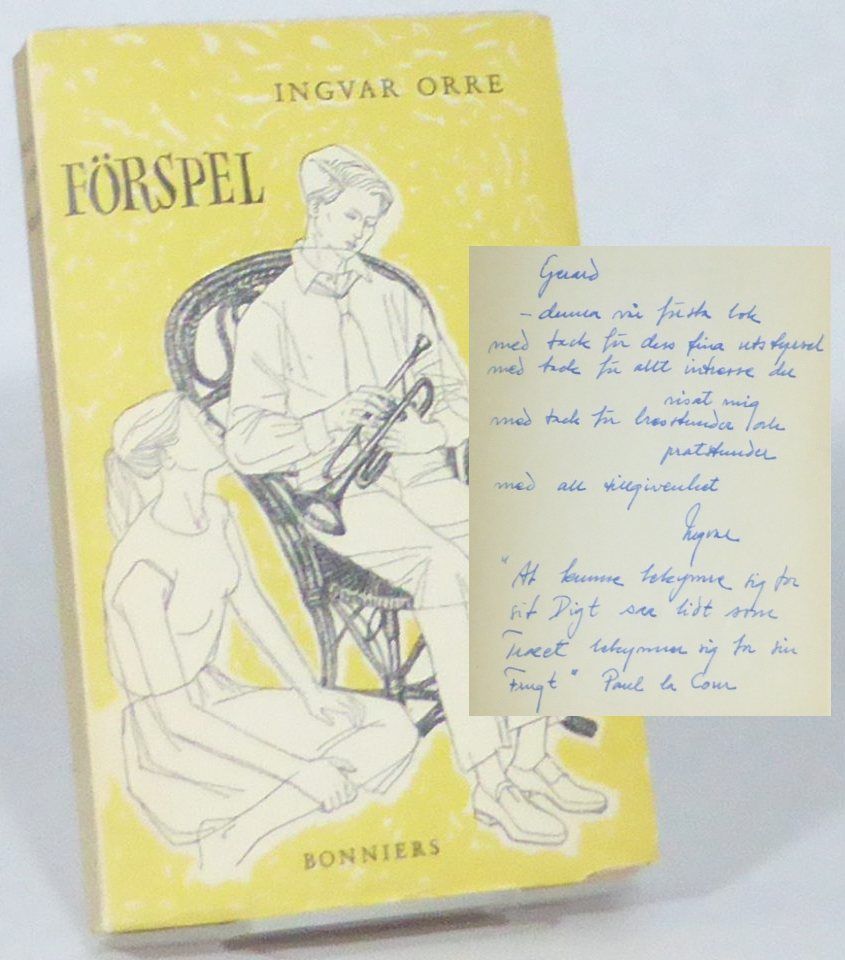 INGVAR ORRE
FÖRSPEL
BONNIERS
Gerard
– denna vår första bok
med tack för dess fina utstyrsel
med tack för allt intresse du
visat mig
med tack för lässtunder och
pratstunder
med all tillgivenhet
Ingvar
"At kunne bekymre sig for
sit Digt saa lidt som
Træet bekymrer sig for sin
Frugt" Paul la Cour